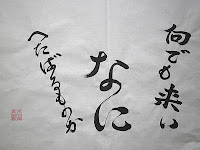 何でも来い
なに
へたばるものか